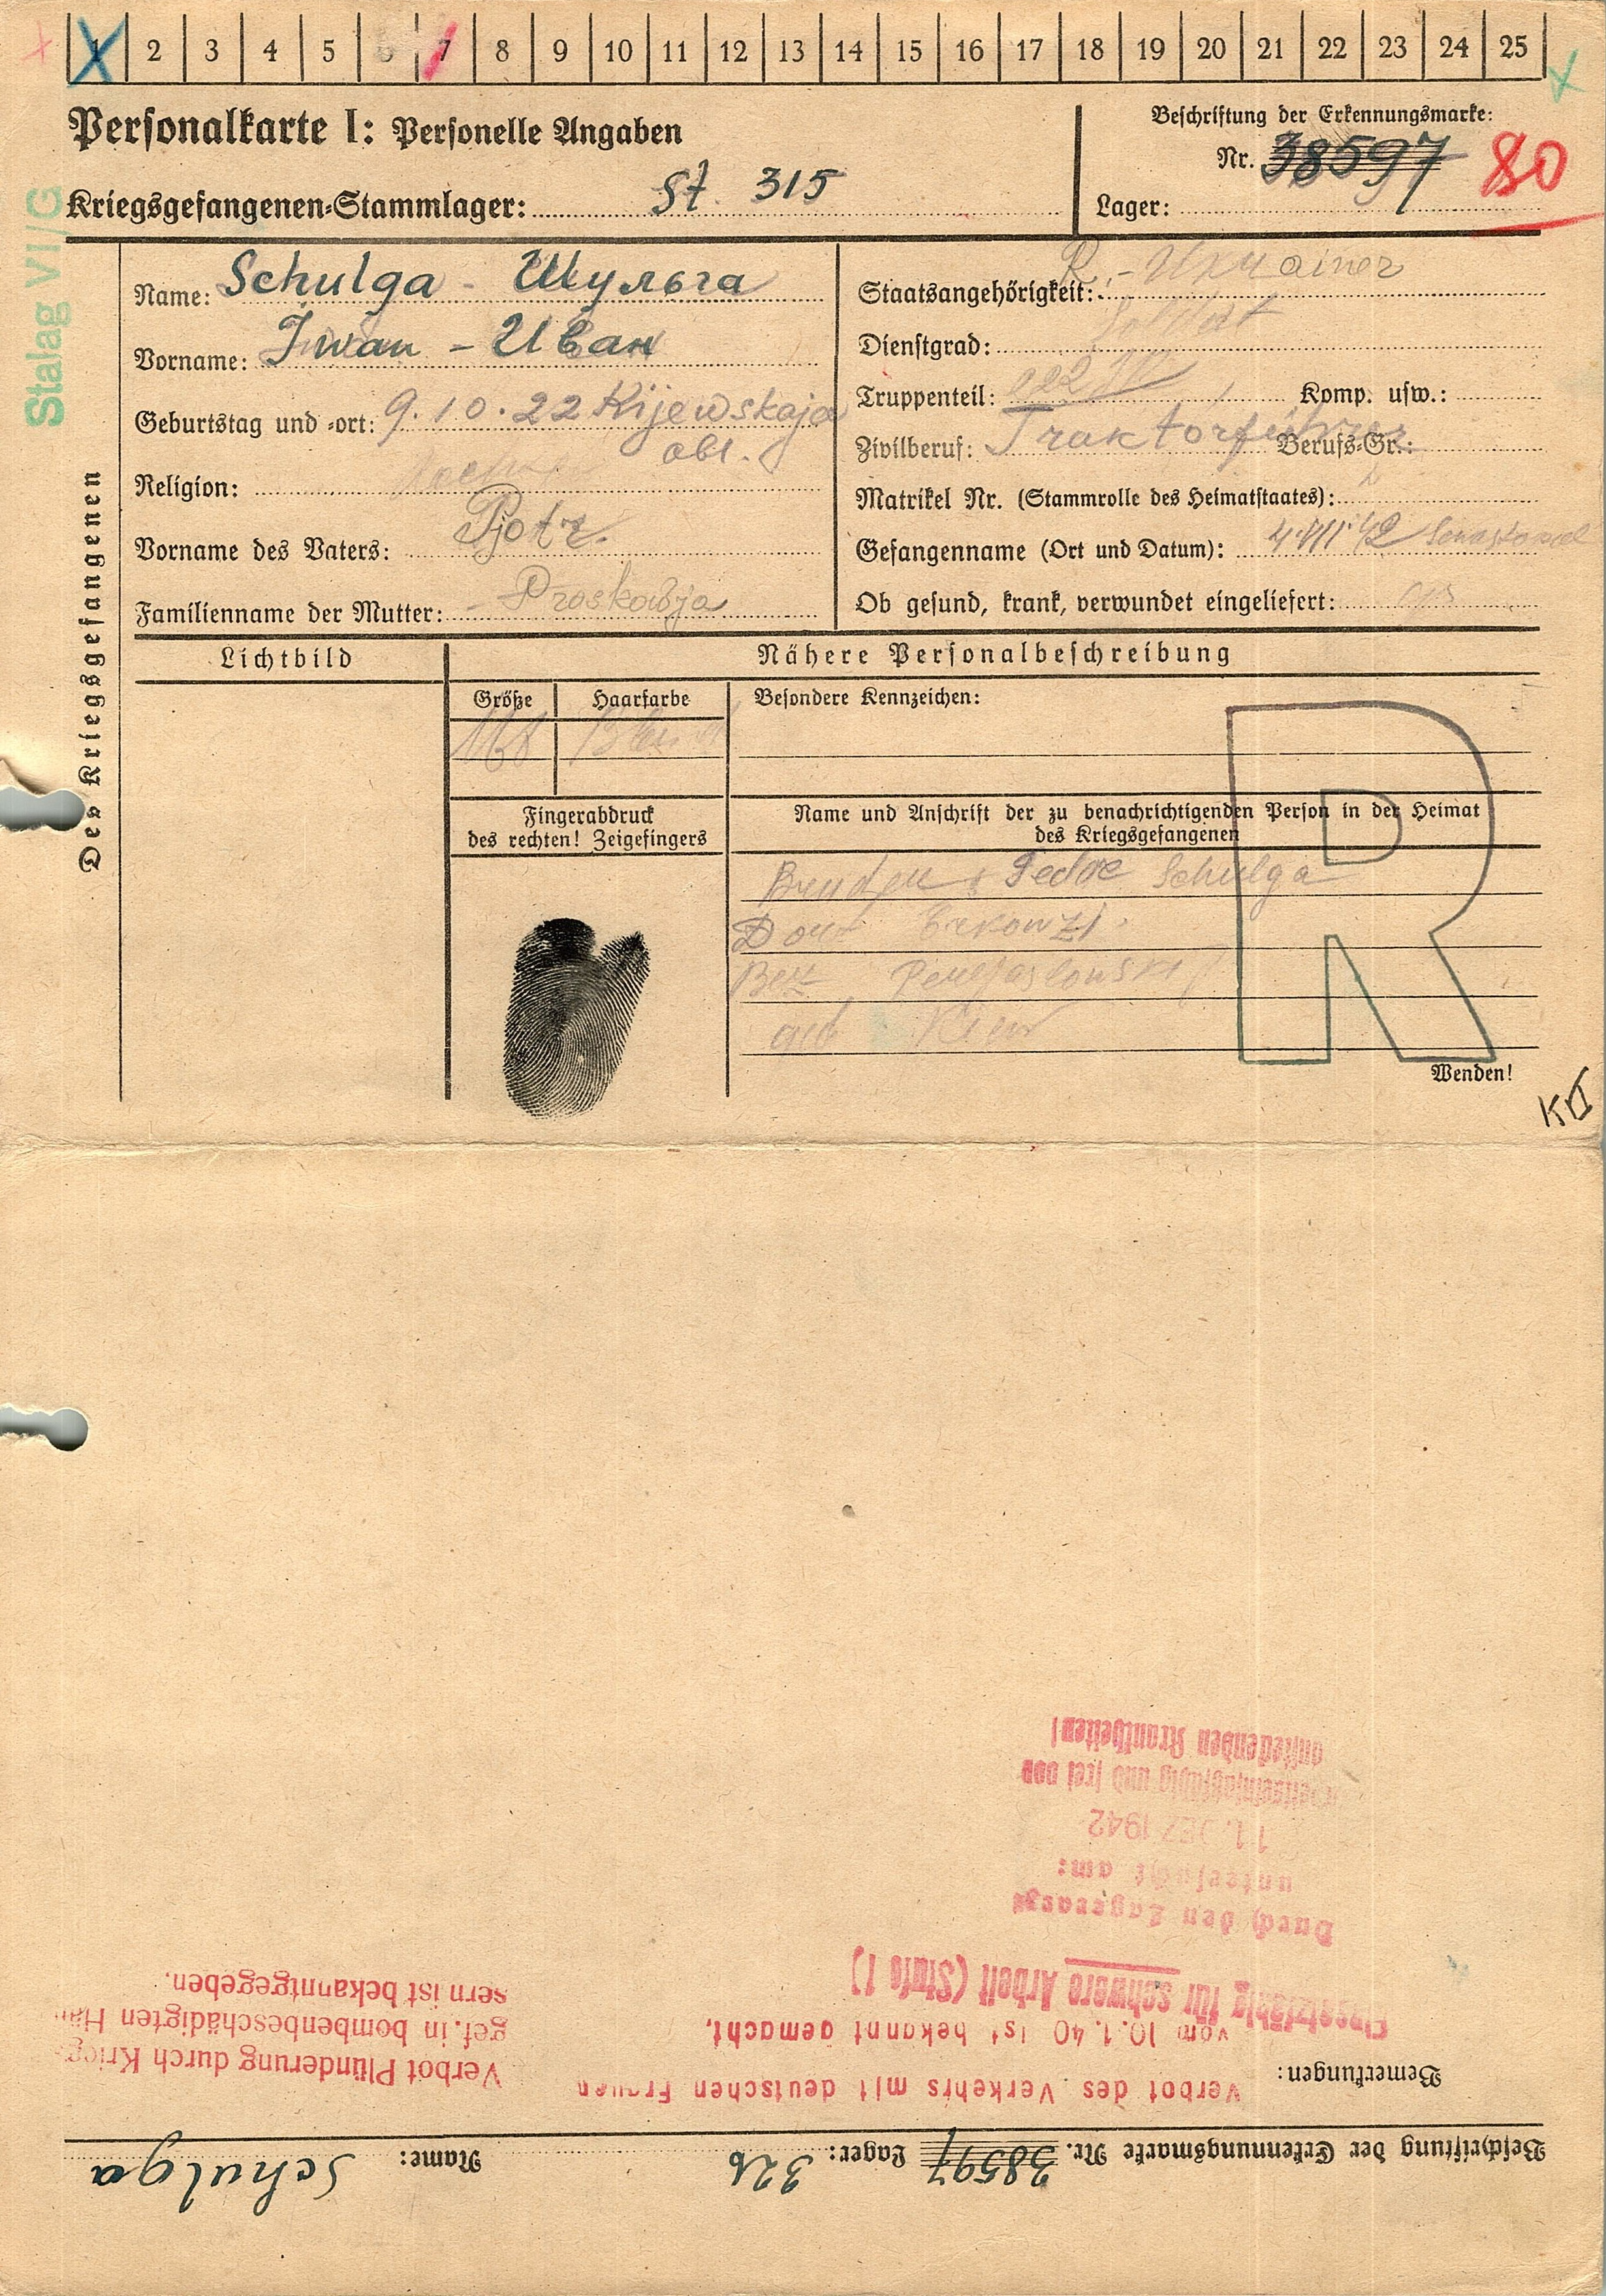 1 2 3 4 5 6 7 8 9 10 11 12 13 14 15 16 17 18 19 20 21 22 23 24 25
Personalkarte I: Personelle Angaben
Beschriftung der Erkennungsmarke:
Nr. 38597 80
Kriegsgefangenen-Stammlager: St 315
Lager:
Stalag VI/G
Des Kriegsgefangenen
Name: Schulga - Шульга
Vorname: Iwan - Иван
Geburtstag und -ort: 9.10.22 Kijewskaja
obl.
Religion:
Vorname des Vaters: Pjotr.
Familienname der Mutter: Proskowja
Staatsangehörigkeit: R.-Ukrainer
Dienstgrad: Soldat
Truppenteil: Komp. usw.:
Zivilberuf: Traktorführer Berufs-Gr.:
Matrikel Nr. (Stammrolle des Heimatstaates):
Gefangenname (Ort und Datum): 4.VII.42 Sewastopol
Ob gesund, krank, verwundet eingeliefert:
Lichtbild
Nähere Personalbeschreibung
Größe Haarfarbe Besondere Kennzeichen:
168
Fingerabdruck
des rechten! Zeigefingers
Name und Anschrift der zu benachrichtigenden Person in der Heimat
des Kriegsgefangenen
Fedor Schulga
Dorf
Bez.
Kiew
R
Wenden!
Beschriftung der Erkennungsmarke Nr. 38597 Lager: 326 Name: Schulga
Bemerkungen:
Verbot des Verkehrs mit deutschen Frauen
vom 10.1.40 ist bekannt gemacht.
Einsatzfähig für schwere Arbeit (Stufe 1)
Durch den Lagerarzt
untersucht am:
11. DEZ 1942
arbeitseinsatzfähig und frei von
ansteckenden Krankheiten!
Verbot Plünderung durch Kriegs
gef. in bombenbeschädigten Häu
sern ist bekanntgegeben.